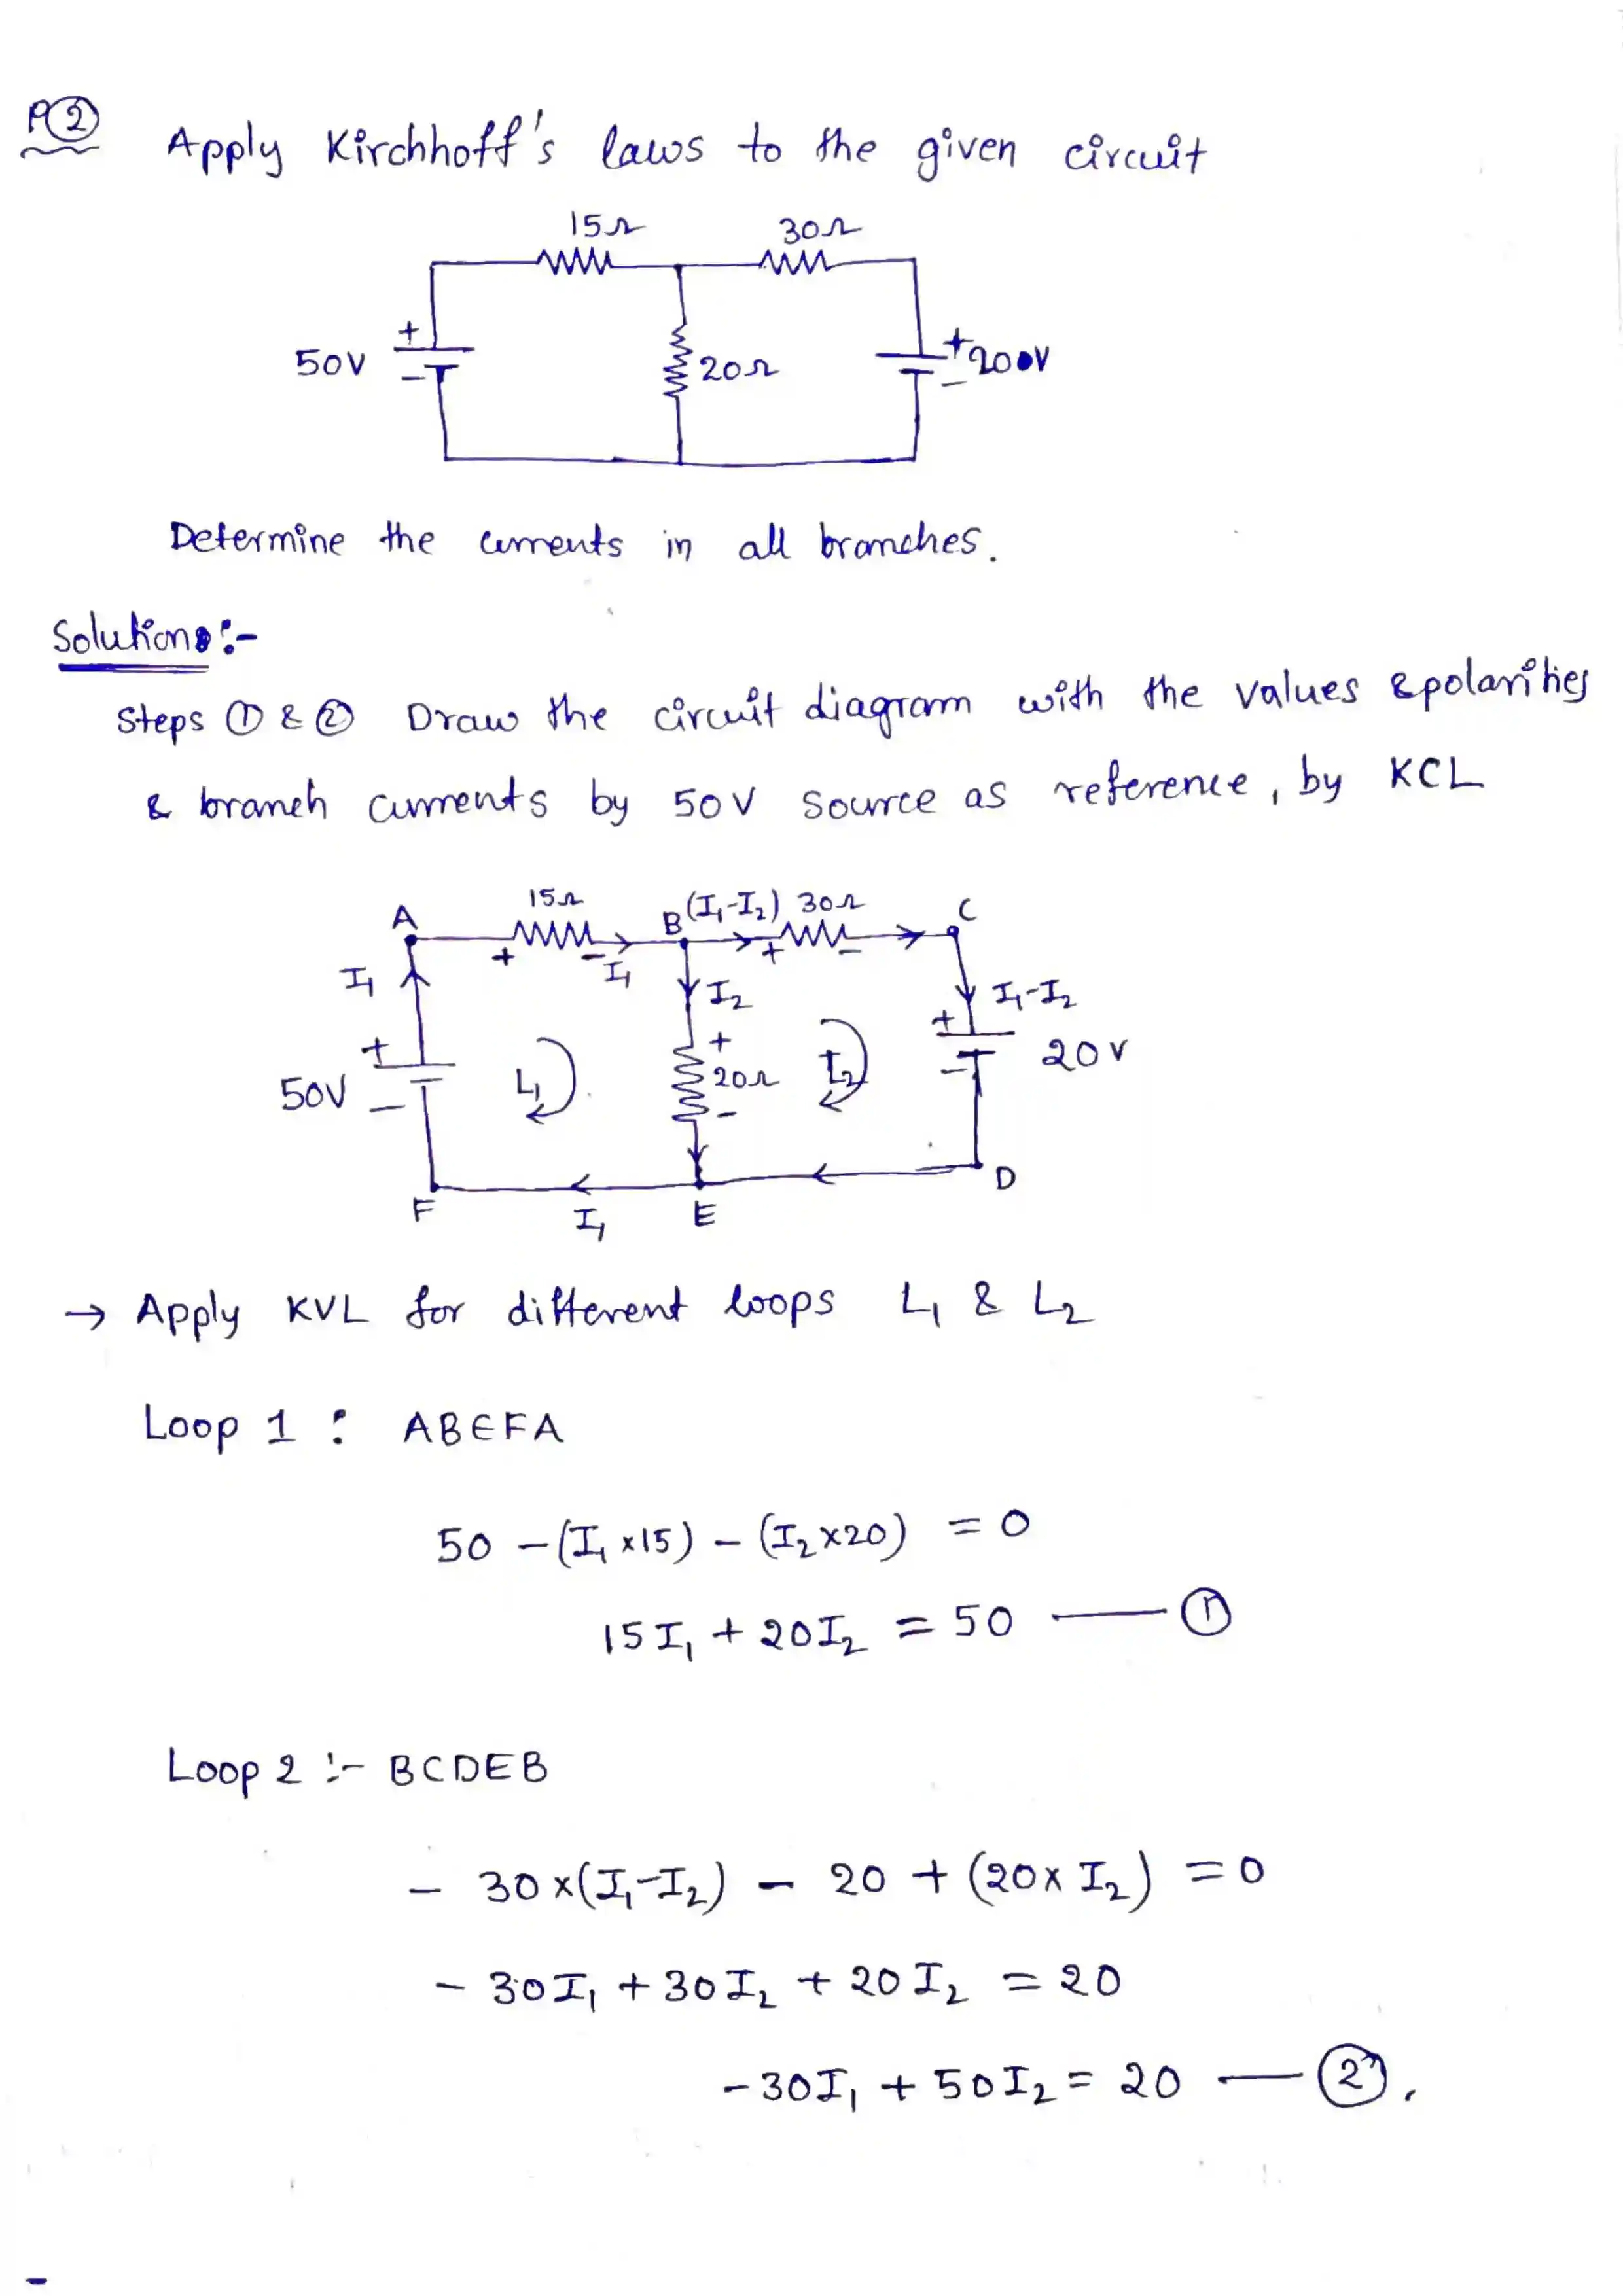 P②
Apply Kirchhoff's laws to the given circuit
15Ω 30Ω
50V + - 20Ω + 200V -
Determine the currents in all branches.
Solution:-
Steps ① & ② Draw the circuit diagram with the values & polarities
& branch currents by 50V source as reference, by KCL
A 15Ω B (I₁-I₂) 30Ω C
I₁ + - I₁ + -
I₂ I₁-I₂
+ + +
50V - L₁ 20Ω L₂ - 20V
-
F I₁ E D
→ Apply KVL for different loops L₁ & L₂
Loop 1 : ABEFA
50 - (I₁ x15) - (I₂x20) = 0
15I₁ + 20I₂ = 50 — ①
Loop 2 :- BCDEB
- 30x(I₁-I₂) - 20 + (20x I₂) = 0
- 30I₁ + 30I₂ + 20I₂ = 20
-30I₁ + 50I₂ = 20 — ②.